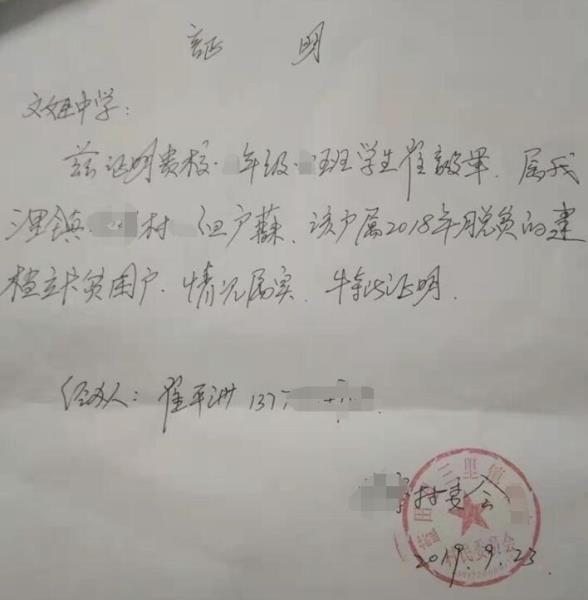 证 明
文姬中学:
兹证明贵校 年级 班学生崔毅军,属我
里镇 村 组户籍,该户属2018年脱贫的建
档立卡贫困户,情况属实,特此证明。
经办人:崔平洲 137
村委会
三里镇
村民委员会
2019.9.23